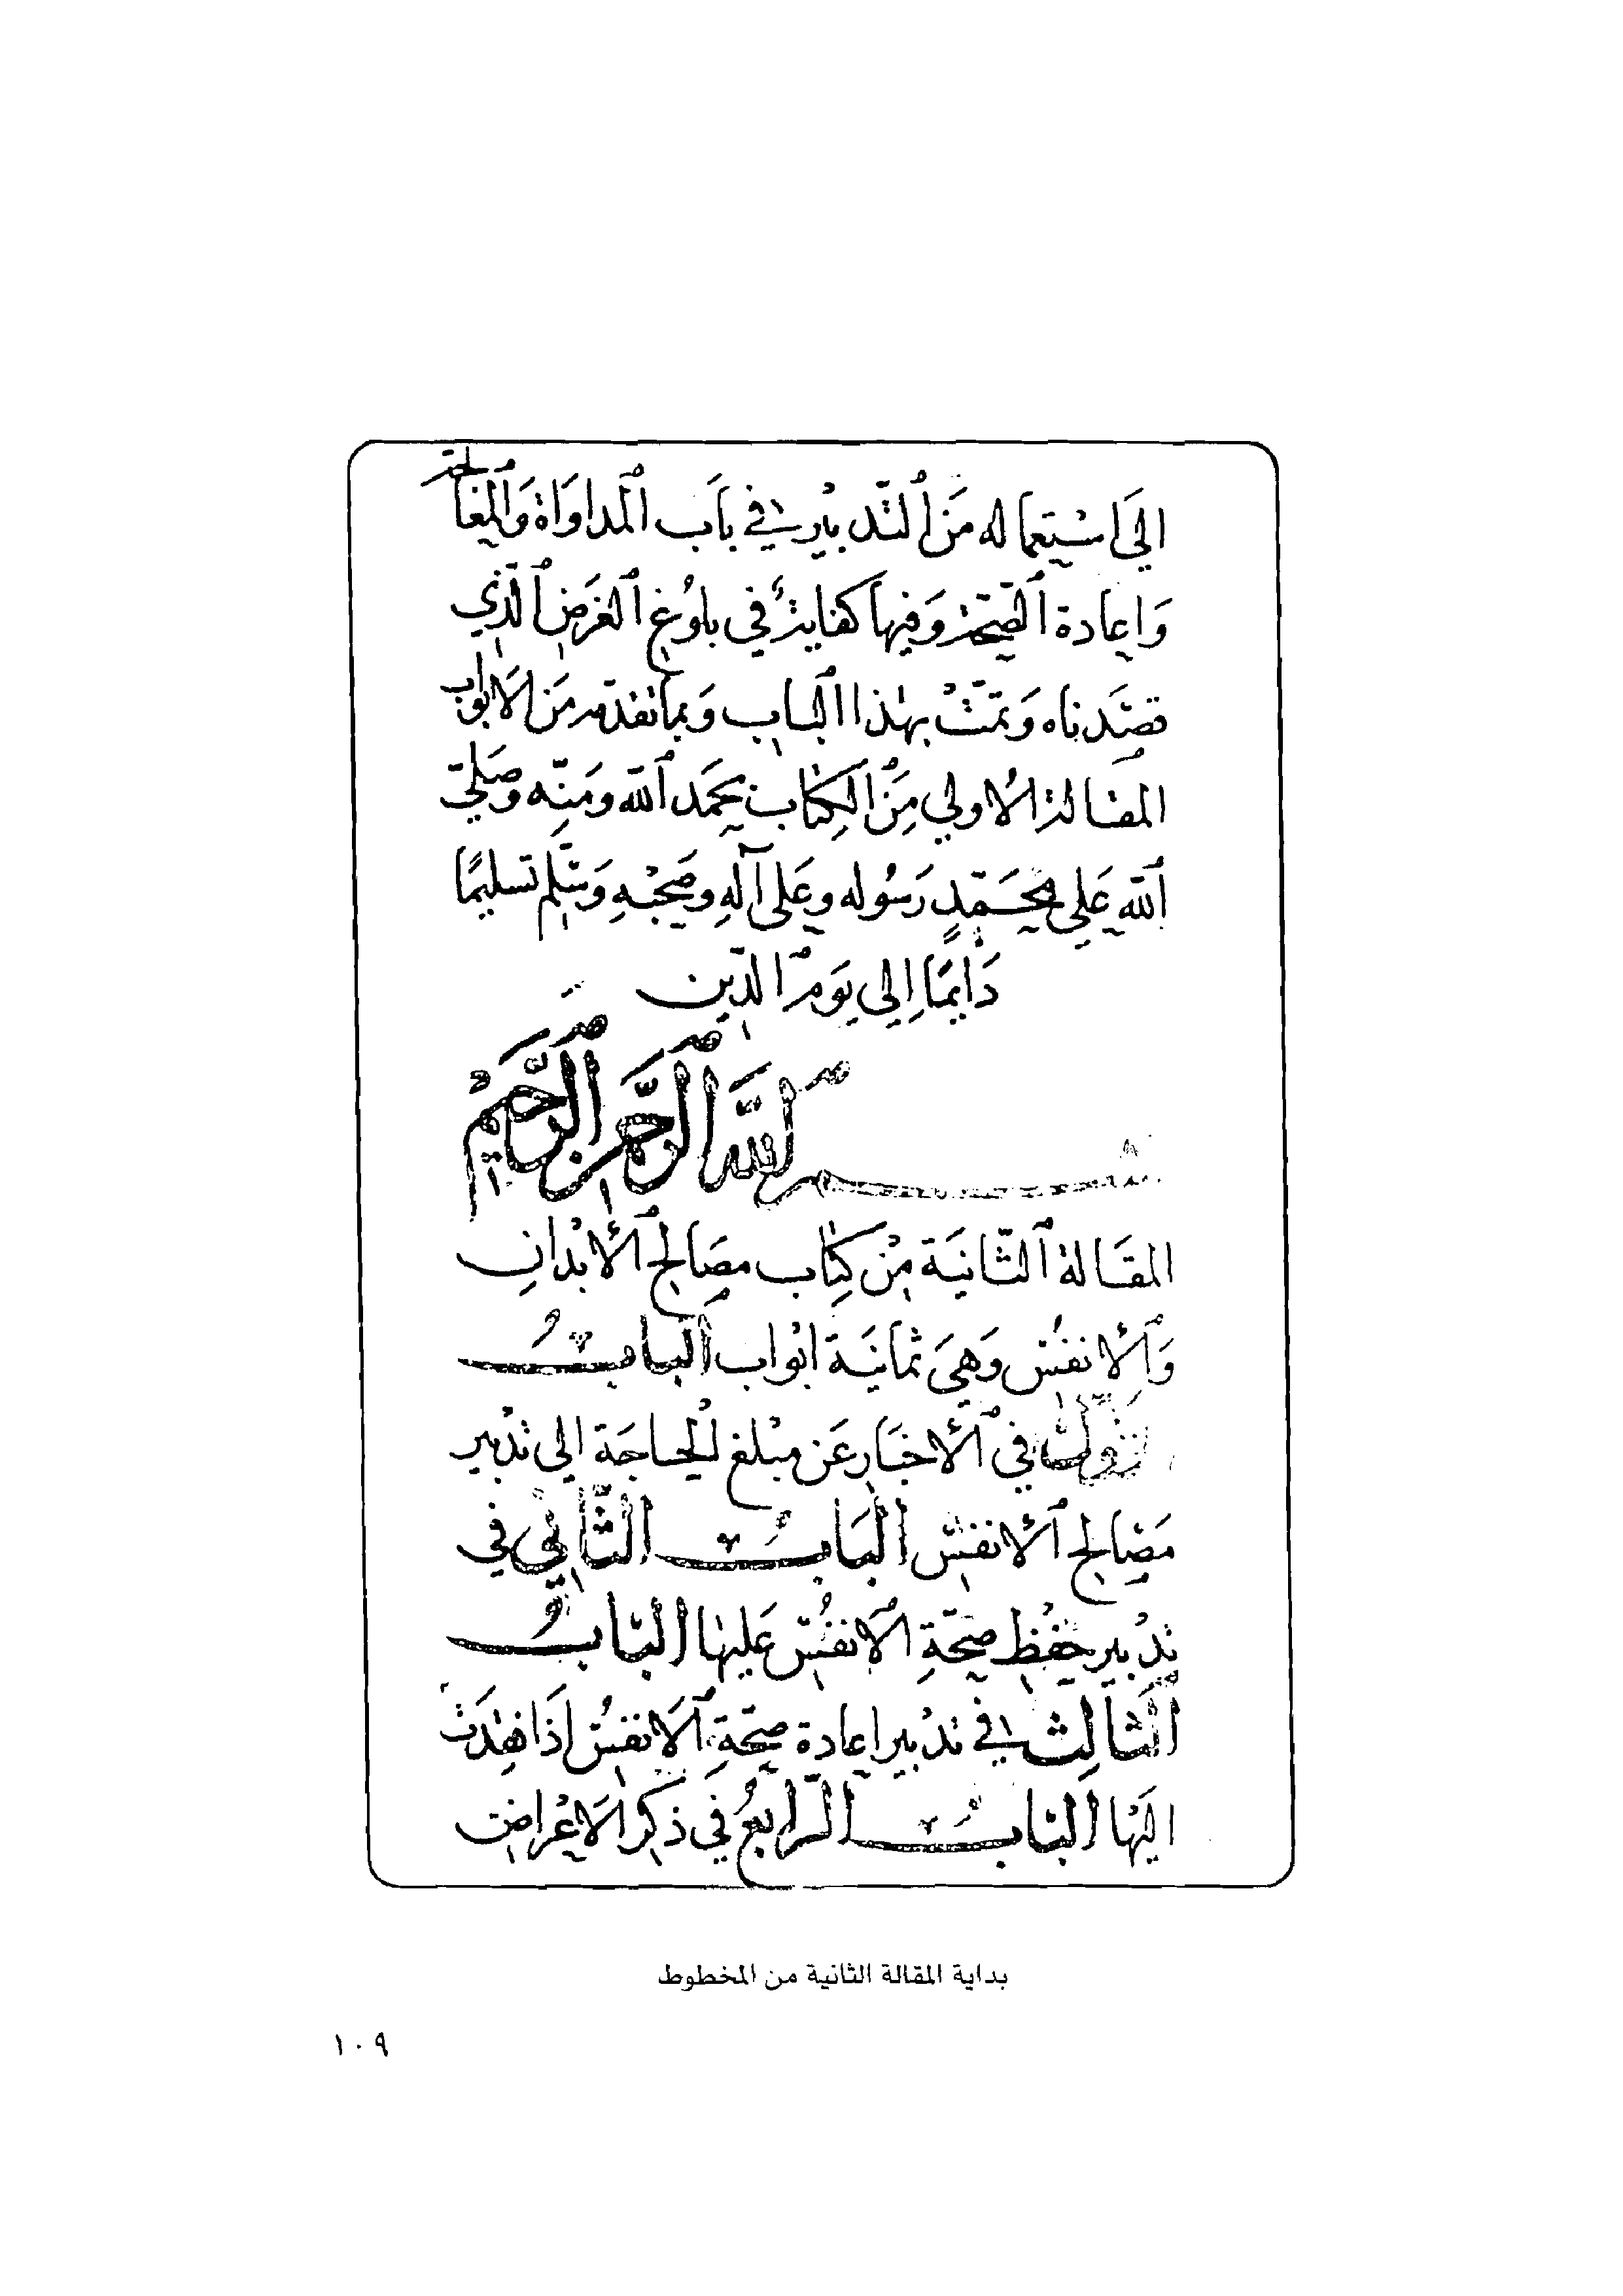 الَى اسْتِعماله مَن ٱلتّدبيْر في بَاب ٱلمداوَاة وَٱلمعَالجة
وَاعِادة ٱلصِّحّة وَفيهَا كفاية في بلوُغ ٱلغرَض ٱلّذي
قصَدناه وَتمّتْ بهٰذا ٱلباب وَبمَا تقدّم مَن الَابوَاب
المقالة الاولي مِنَ الكِتَاب بحَمَد ٱللّه ومَنِّه وَصَلّيَ
ٱللّه عَلي محَمّدٍ رَسُوله وعَلى آلهِ وصَحْبهِ وَسَلّم تسليمًا
دَايمًا اِلي يَومْ الدّين
بسم ٱللّه ٱلرّحمٰن ٱلرّحَيمْ
المقَالة ٱلثّانيَة مِنْ كِتاب مصَالح ٱلأبْدانِ
وَٱلأنفُسْ وَهِيَ ثمانيَة ابْواب البابُ
الأوّل في ٱلأخبَار عَن مبْلغ الحَاجَة الي تدْبير
مَصَالح ٱلأنفسْ البَابُ الثّاني في
تدْبير حفْظ صِحّةِ ٱلانفُسْ عَليهٰا البَابُ
الثالِث في تدْبير اعادة صِحّةِ ٱلَانفسُ اذَا فقِدَتْ
اليْهَا البَابُ الرّابعُ في ذكر الَاعْراض
بداية المقالة الثانية من المخطوط
١٠٩